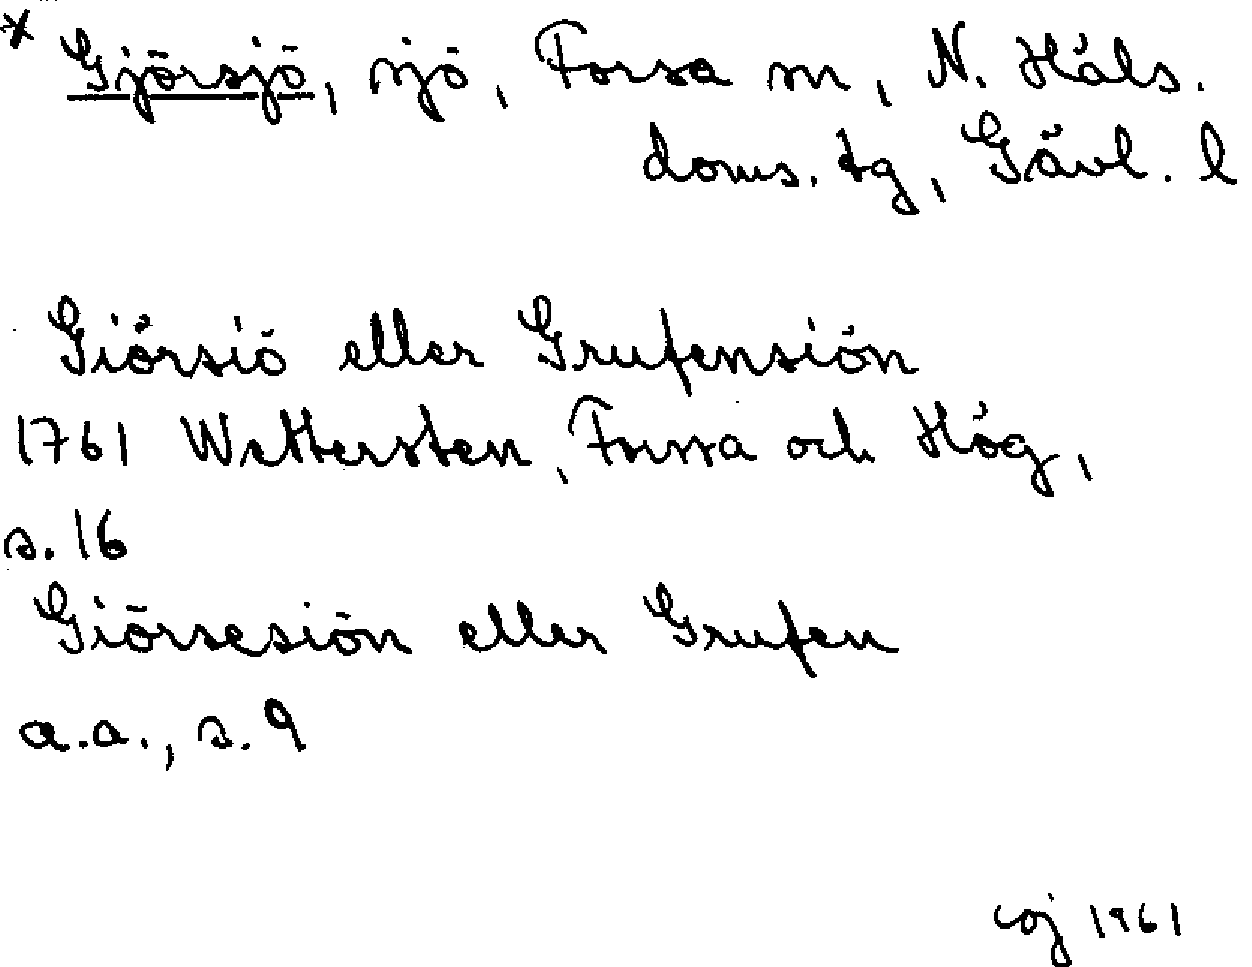 * Gjörsjö, sjö, Forsa sn, N. Häls.
doms. tg, Gävl. l
Giörsiö eller Grufensiön
1761 Wettersten, Forssa och Hög,
s. 16
Giörsesiön eller Grufen
a.a., s. 9
coj 1961